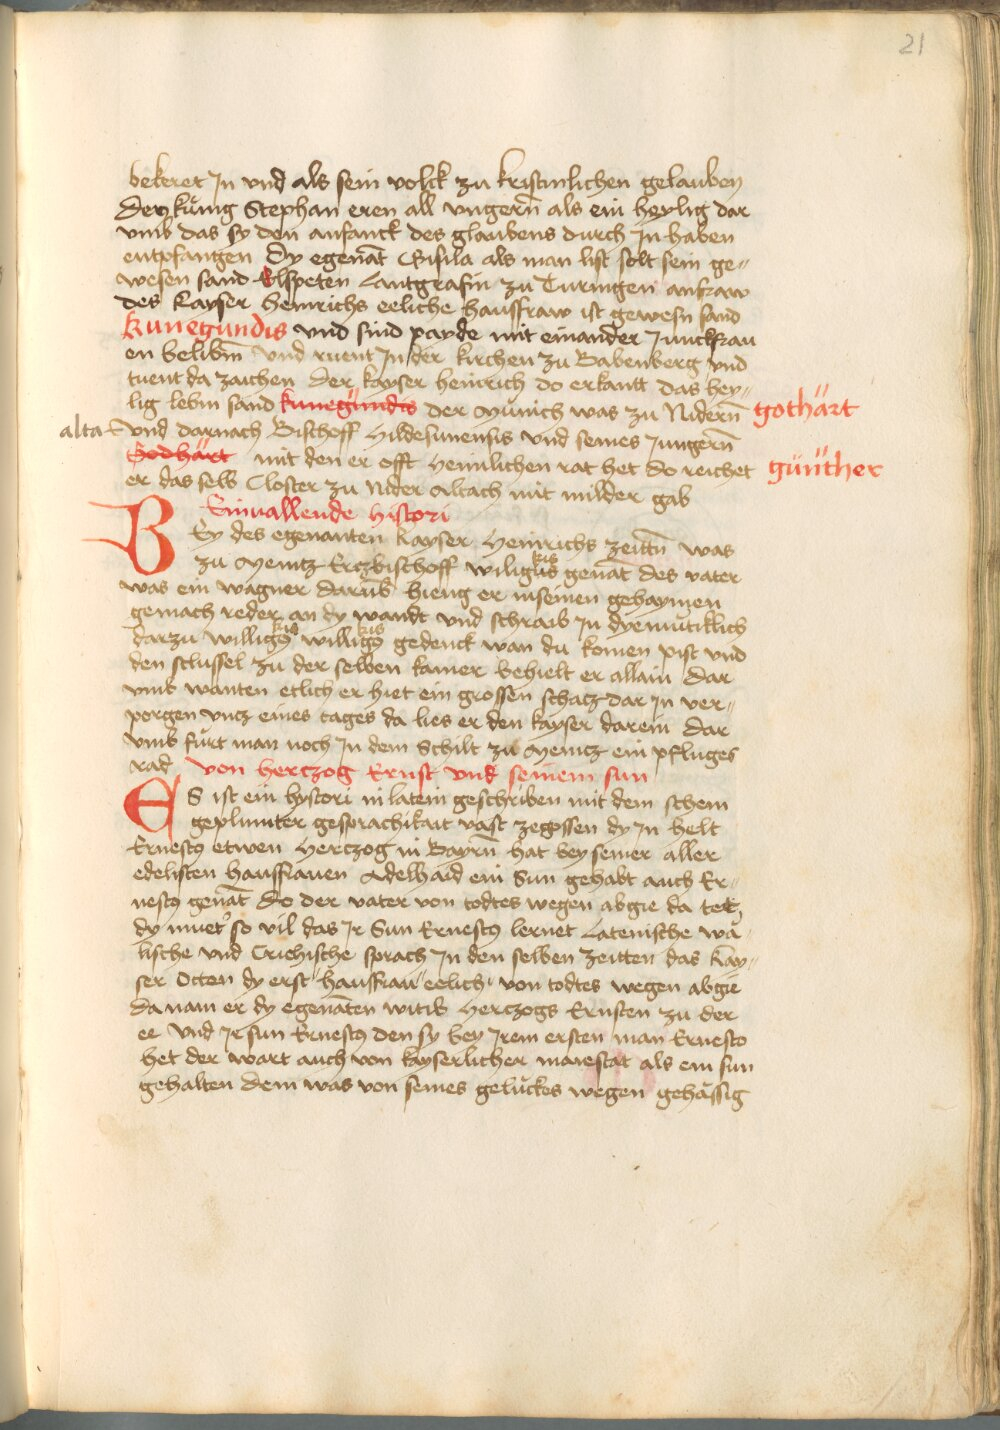 21
bekeret Jn vnd als sein volck zu kristenlichen gelauben
den kůnig Stephan eren all vngern̄ als ein heylig dar
vmb das sy den anfanck des glaubens durch Jn haben
entpfangen Dy egenāt Gisila als man list solt sein ge„
wesen sand Elspeten Lantgrafin zu Turingen anfraw
des kayser heinrichs eeliche hausfraw ist gewesn sand
kunegundis vnd sind payde mit einander Junckfrau
en belibm̄ vnd ruent Jn der kirchen zu Babenberg vnd
tuent da zaichen Der kayser heinrich do erkantt das hey„
lig lebm̄ sand kunegundis der Mŭnich was zu Nidern̄ gothart
alta vnd darnach Bischoff Hildesimensis vnd seines Jungern̄
Godhart mit den er offt heimlichen rat het do reichet günther
er das selb Closter zu Nider Altach mit milder gab
Einuallende histori
BEy des egenanten kayser Heinrichs zeittn̄ was
zu Mentz Erczbischoff wiligus kis genāt des vater
was ein wagner darūb hieng er in seinen gehaymen
gemach reder an dy wandt vnd schraib Jn dyemŭtiklich
darzu willigꝰ kis willigꝰ kis gedenck wan du komen pist vnd
den slussel zu der selben kamer behielt er allain Dar
vmb wanten etlich er hiet ein grossen schatz dar Jn ver„
porgen vncz eines tages da lies er den kayser darein Dar
vmb fŭrt man noch Jn dem Schilt zu Mentz ein pfluges
rad von herczog Ernst vnd seinem sun
ES ist ein hystori in latein geschriben mit dem schein
geplumter gesprachikait vast zegossen dy Jn helt
Ernestꝰ etwen Herczog in Bayrn̄ hat bey seiner aller
edelisten hausfrauen Adelhaid ein Sun gehabt auch Er„
nestꝰ genāt Do der vater von todtes wegen abgie da tet
dy muetꝰ so vil das Jr Sun Ernestꝰ lernet Lateinische wā„
lische vnd Criehische sprach Jn den selben zeitten das kay„
ser Otten dy erst hausfrau eelich von todtes wegen abgie
da nam er dy egenāten witib Herczogs Ernsten zu der
ee vnd Jr sun Ernestꝰ den sy bey Jrem ersten man Ernesto
het der wart auch von kayserlicher maiestat als ein sun
gehalten dem was von seines gelŭckes wegen gehåssig